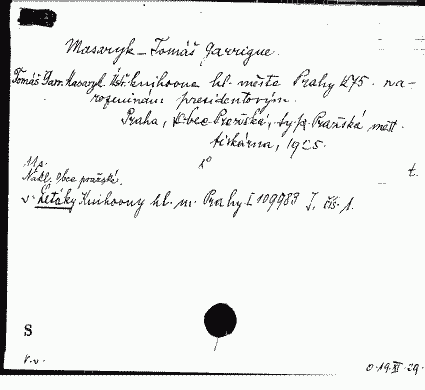 Masaryk - Tomáš Garrigue.
Tomáš Garr. Masaryk. Ústř. knihovna hl. města Prahy k 75. na-
rozeninám presidentovým.
Praha, Obec Pražská, typ. Pražská měst.
tiskárna, 1925.
8°
t.
Nakl. obce pražské.
v: Letáky Knihovny hl. m. Prahy [109983], čís. 1.
S
r.v.
0.19.XI.29.